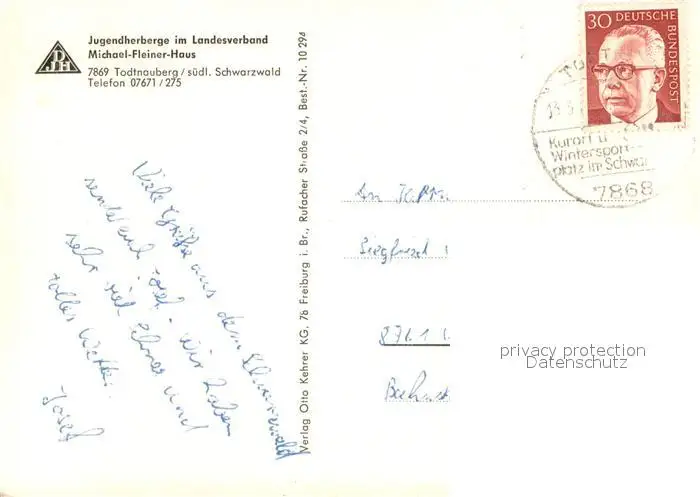 Jugendherberge im Landesverband
Michael-Fleiner-Haus
7869 Todtnauberg / südl. Schwarzwald
Telefon 07671 / 275
DJH
Viele Grüße aus dem Schwarzwald
sendet euch Josef. Wir haben
sehr viel Schnee und
tolles Wetter.
Josef
Verlag Otto Kehrer KG, 78 Freiburg i. Br., Rufacher Straße 2/4, Best.-Nr. 10 294
30 DEUTSCHE
BUNDESPOST
TODT
Kurort u
Wintersport-
platz im Schwar
7868
An
Siegfried
8761
privacy protection
Datenschutz